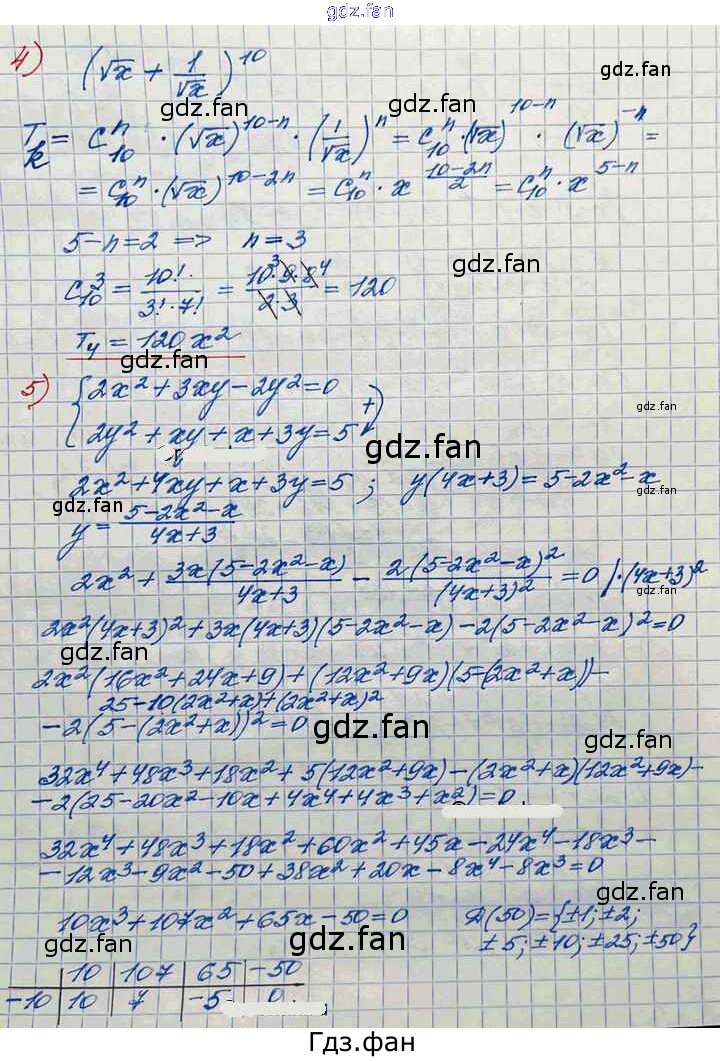 gdz.fan
4) (√x + 1/√x)^10
gdz.fan gdz.fan
T_k = C_10^n · (√x)^(10-n) · (1/√x)^n = C_10^n · (√x)^(10-n) · (√x)^(-n) =
= C_10^n · (√x)^(10-2n) = C_10^n · x^((10-2n)/2) = C_10^n · x^(5-n)
gdz.fan gdz.fan
5-n=2 => n=3
gdz.fan
C_10^3 = 10!/(3!·7!) = (10·9·8)/(2·3) = 120
3 4
T_4 = 120x²
gdz.fan
5) { 2x²+3xy-2y²=0
2y²+xy+x+3y=5 +)
gdz.fan gdz.fan
2x²+4xy+x+3y=5 ; y(4x+3)=5-2x²-x
gdz.fan gdz.fan
y = (5-2x²-x)/(4x+3)
2x² + 3x(5-2x²-x)/(4x+3) - 2(5-2x²-x)²/(4x+3)² = 0 /·(4x+3)²
gdz.fan gdz.fan gdz.fan
2x²(4x+3)²+3x(4x+3)(5-2x²-x)-2(5-2x²-x)²=0
gdz.fan
2x²(16x²+24x+9)+(12x²+9x)(5-(2x²+x))-
25-10(2x²+x)+(2x²+x)²
-2(5-(2x²+x))²=0
gdz.fan gdz.fan
32x⁴+48x³+18x²+5(12x²+9x)-(2x²+x)(12x²+9x)-
gdz.fan gdz.fan
-2(25-20x²-10x+4x⁴+4x³+x²)=0
32x⁴+48x³+18x²+60x²+45x-24x⁴-18x³-
gdz.fan
-12x³-9x²-50+38x²+20x-8x⁴-8x³=0
gdz.fan
10x³+107x²+65x-50=0 Д(50)={±1;±2;
±5;±10;±25;±50}
gdz.fan gdz.fan gdz.fan
10 107 65 -50
-10 10 7 -5 0
gdz.fan
Гдз.фан